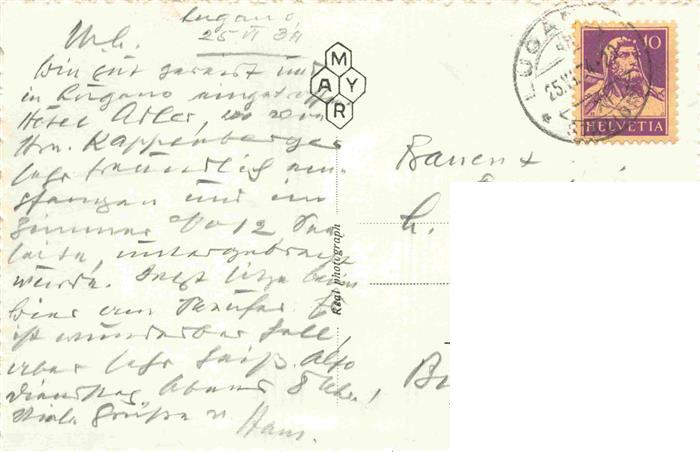 Lugano,
25 VI 34
M. L.
Bin gut gereist und
in Lugano eingetroffen
Hotel Adler, wo von
Hrn. Kappenberger
sehr freundlich em-
pfangen und im
Zimmer No 12
untergebracht
wurde. Jetzt sitze beim
Bier am
ist wunderbar hell,
aber sehr heiß. Also
Dienstag Abend 8 Uhr,
Viele Grüße v
Hans.
MAYR
Real photograph
LUGANO
10
HELVETIA